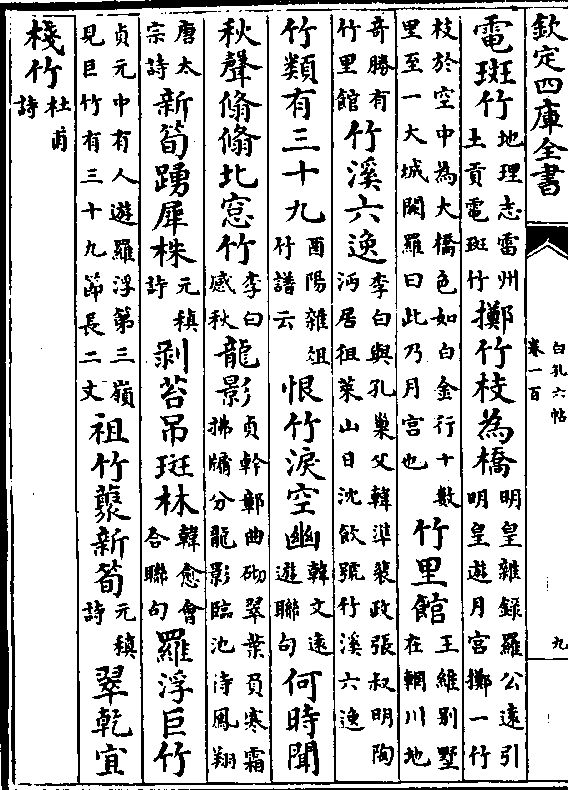 欽定四庫全書 白孔六帖 卷一百 九
電斑竹 地理志雷州土貢電斑竹 擲竹枝為橋 明皇雜録羅公遠引明皇遊月宮擲一竹
枝於空中為大橋色如白金行十數里至一大城闕羅曰此乃月宮也 竹里館 王維别墅在輞川地
奇勝有竹里館 竹溪六逸 李白與孔巢父韓準裴政張叔明陶沔居徂萊山日沈飲號竹溪六逸
竹類有三十九 酉陽雜俎竹譜云 恨竹淚空幽 韓文遠遊聯句 何時聞
秋聲翛翛北窓竹 李白感秋 龍影 貞幹鄭曲砌翠葉負寒霜拂牖分龍影臨池待鳳翔
唐太宗詩 新筍踴犀株 元稹詩 剥苔吊斑林 韓愈會合聯句 羅浮巨竹
貞元中有人遊羅浮第三嶺見巨竹有三十九節長二丈 祖竹藂新筍 元稹詩 翠乾宜
棧竹 杜甫詩